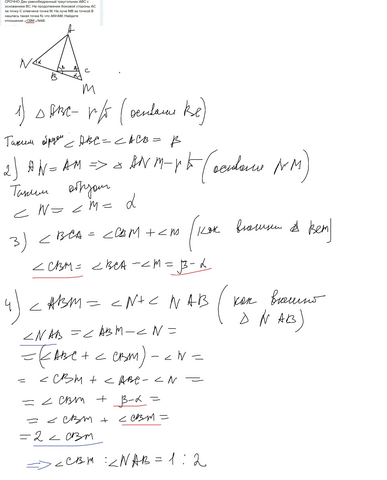 СРОЧНО Дан равнобедренный треугольник АВС с
основанием ВС. На продолжении боковой стороны АС
за точку С отмечена точка М. На луче МВ за точкой В
нашлась такая точка N, что AN=AM. Найдите
отношение ∠CBM : ∠NAB
A
N
B
C
M
1) △ ABC – р/б (основание BC)
Таким образом ∠ABC = ∠ACB = β
2) AN = AM => △ ANM – р/б (основание NM)
Таким образом
∠N = ∠M = α
3) ∠BCA = ∠CBM + ∠M (как внешний △ BCM)
∠CBM = ∠BCA – ∠M = β – α
4) ∠ABM = ∠N + ∠NAB (как внешний
△ NAB)
∠NAB = ∠ABM – ∠N =
= (∠ABC + ∠CBM) – ∠N =
= ∠CBM + ∠ABC – ∠N =
= ∠CBM + β – α =
= ∠CBM + ∠CBM =
= 2 ∠CBM
=> ∠CBM : ∠NAB = 1 : 2